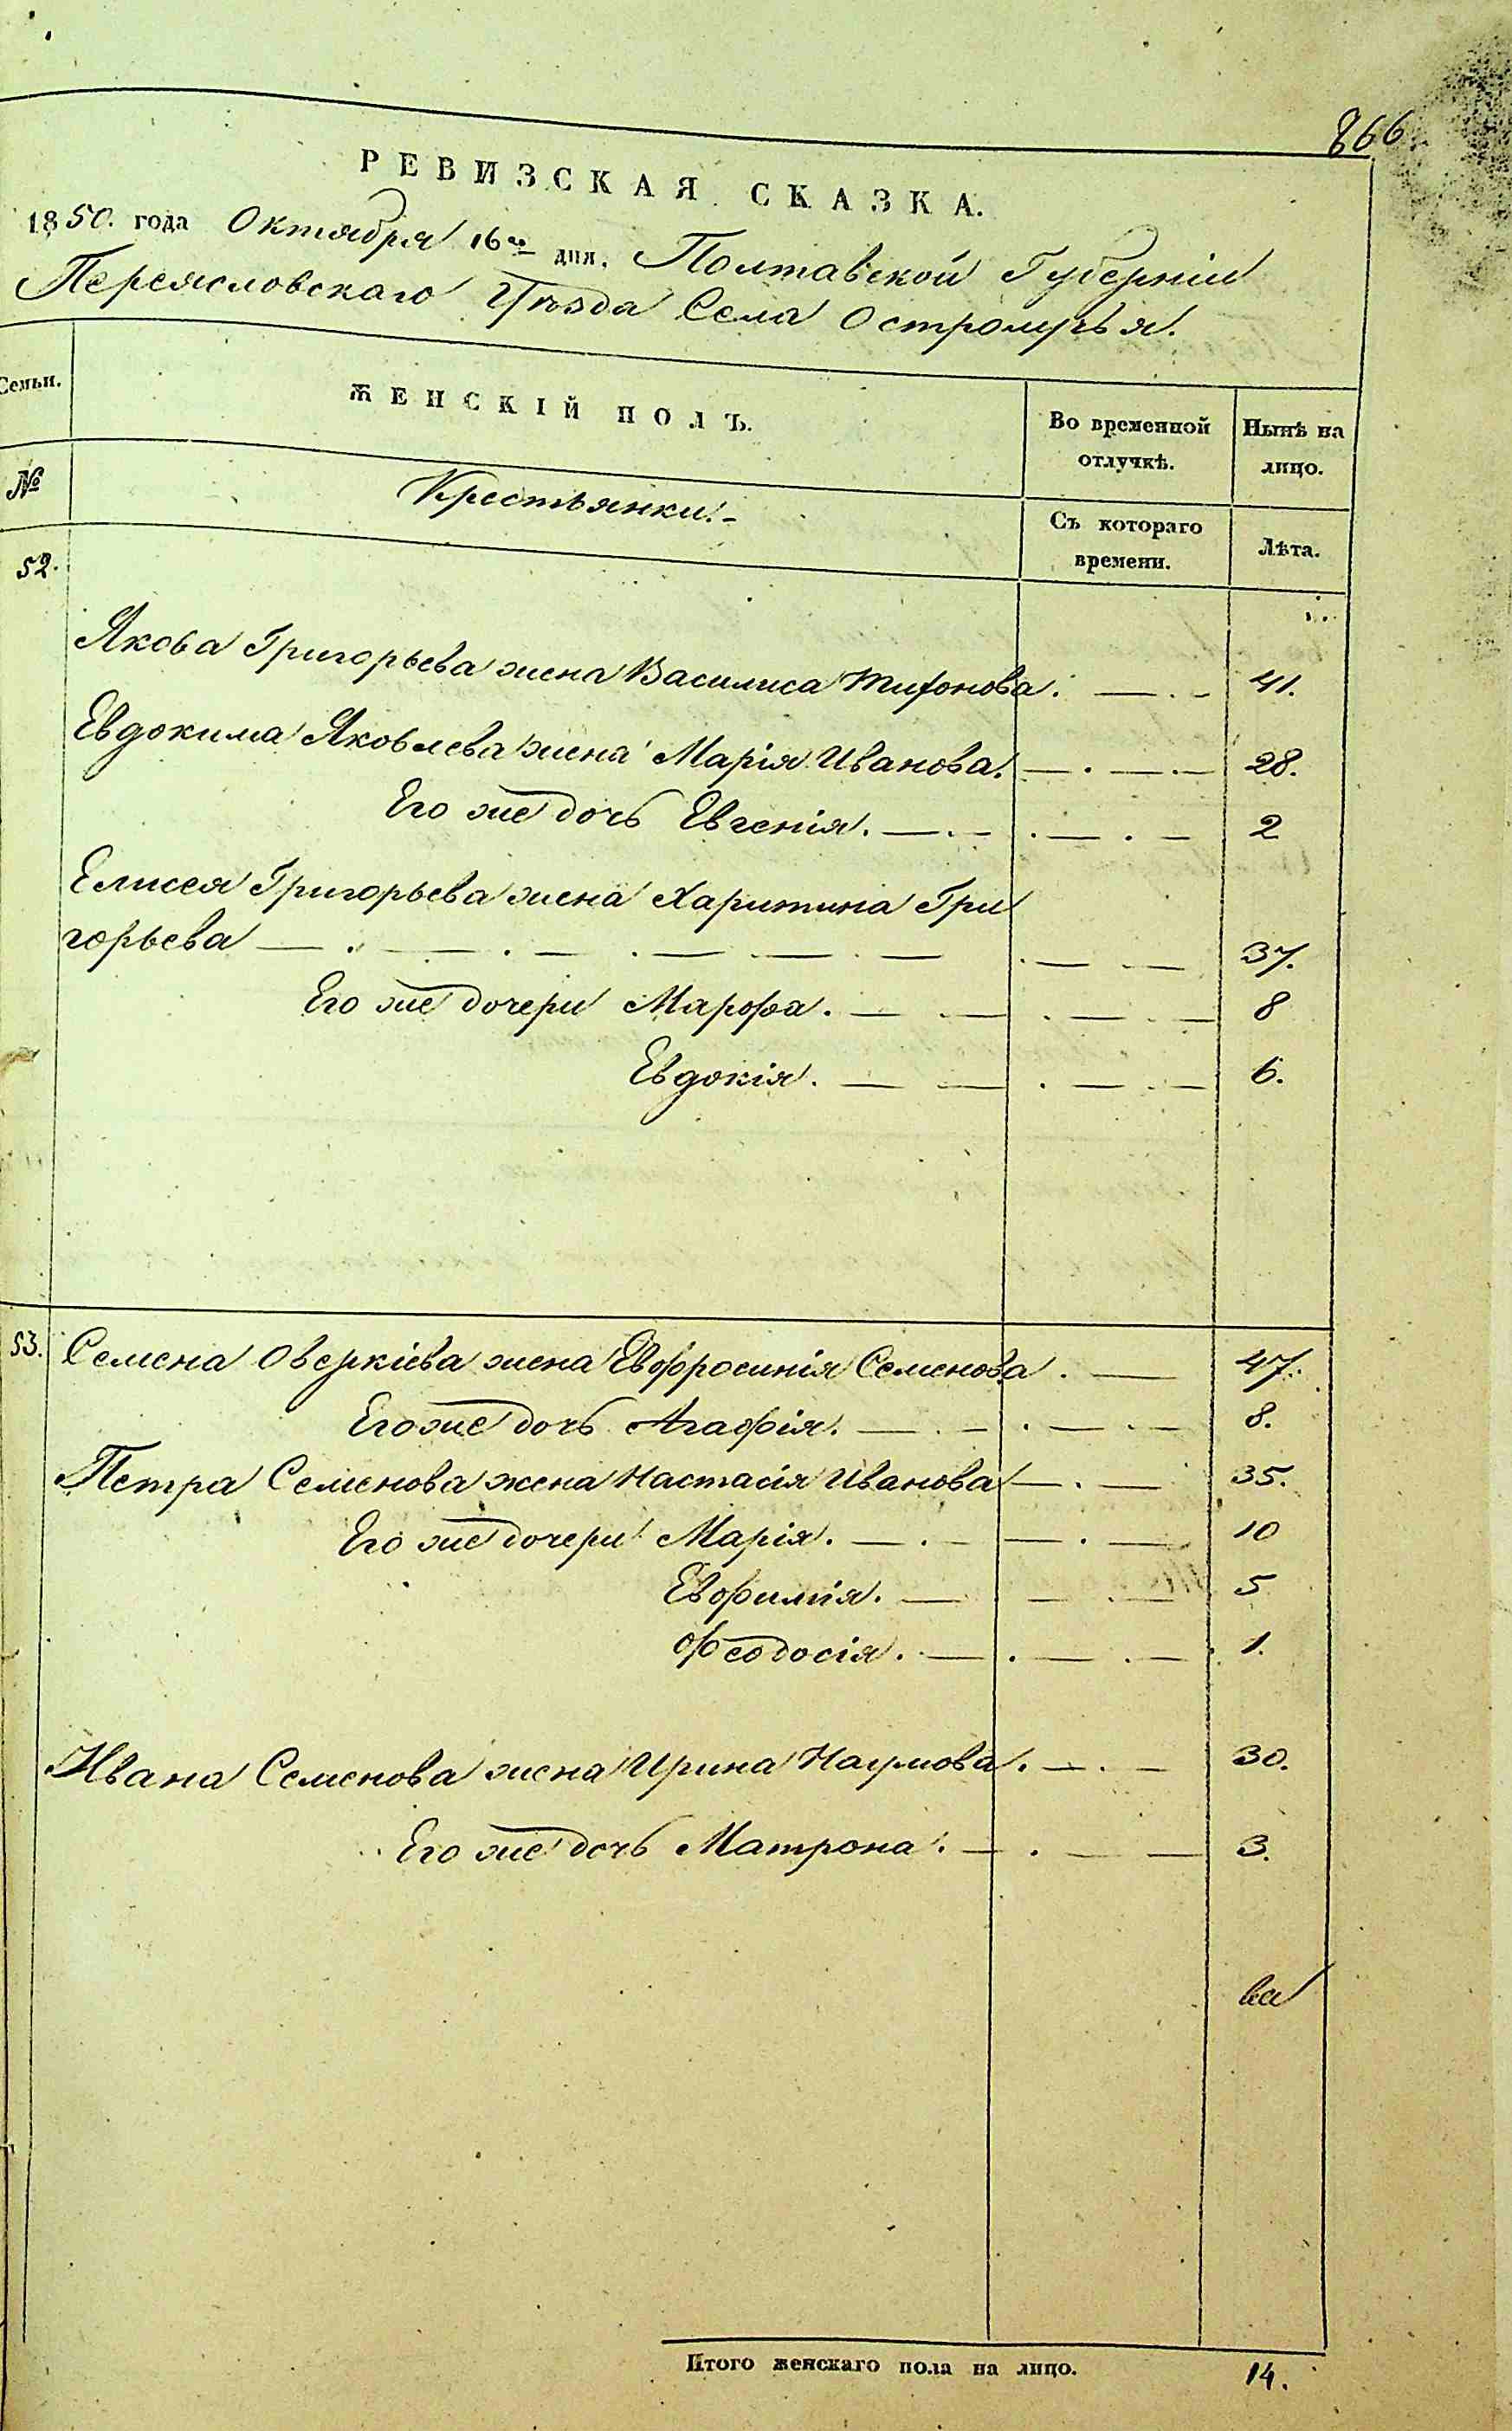 866
РЕВИЗСКАЯ СКАЗКА.
1850. года Октября 16го дня, Полтавской Губерніи
Переясловскаго Уѣзда Села Остролучья.
Семьи. ЖЕНСКІЙ ПОЛЪ. Во временной отлучкѣ. Нынѣ на лицо.
№ Крестьянки. Съ котораго времени. Лѣта.
52.
Якова Григорьева жена Василиса Тифонова. 41.
Евдокима Яковлева жена Марія Иванова. 28.
Его же дочь Евгенія. 2
Елисея Григорьева жена Харитина Гри
горьева 37.
Его же дочери Марфа. 8
Евдокія. 6.
53. Семена Оверкіева жена Евфросинія Семенова. 47.
Его же дочь Агафія. 8.
Петра Семенова жена Настасія Иванова 35.
Его же дочери Марія. 10
Евфимія. 5
Феодосія. 1.
Ивана Семенова жена Ирина Наумова. 30.
Его же дочь Матрона. 3.
ва
Итого женскаго пола на лицо. 14.